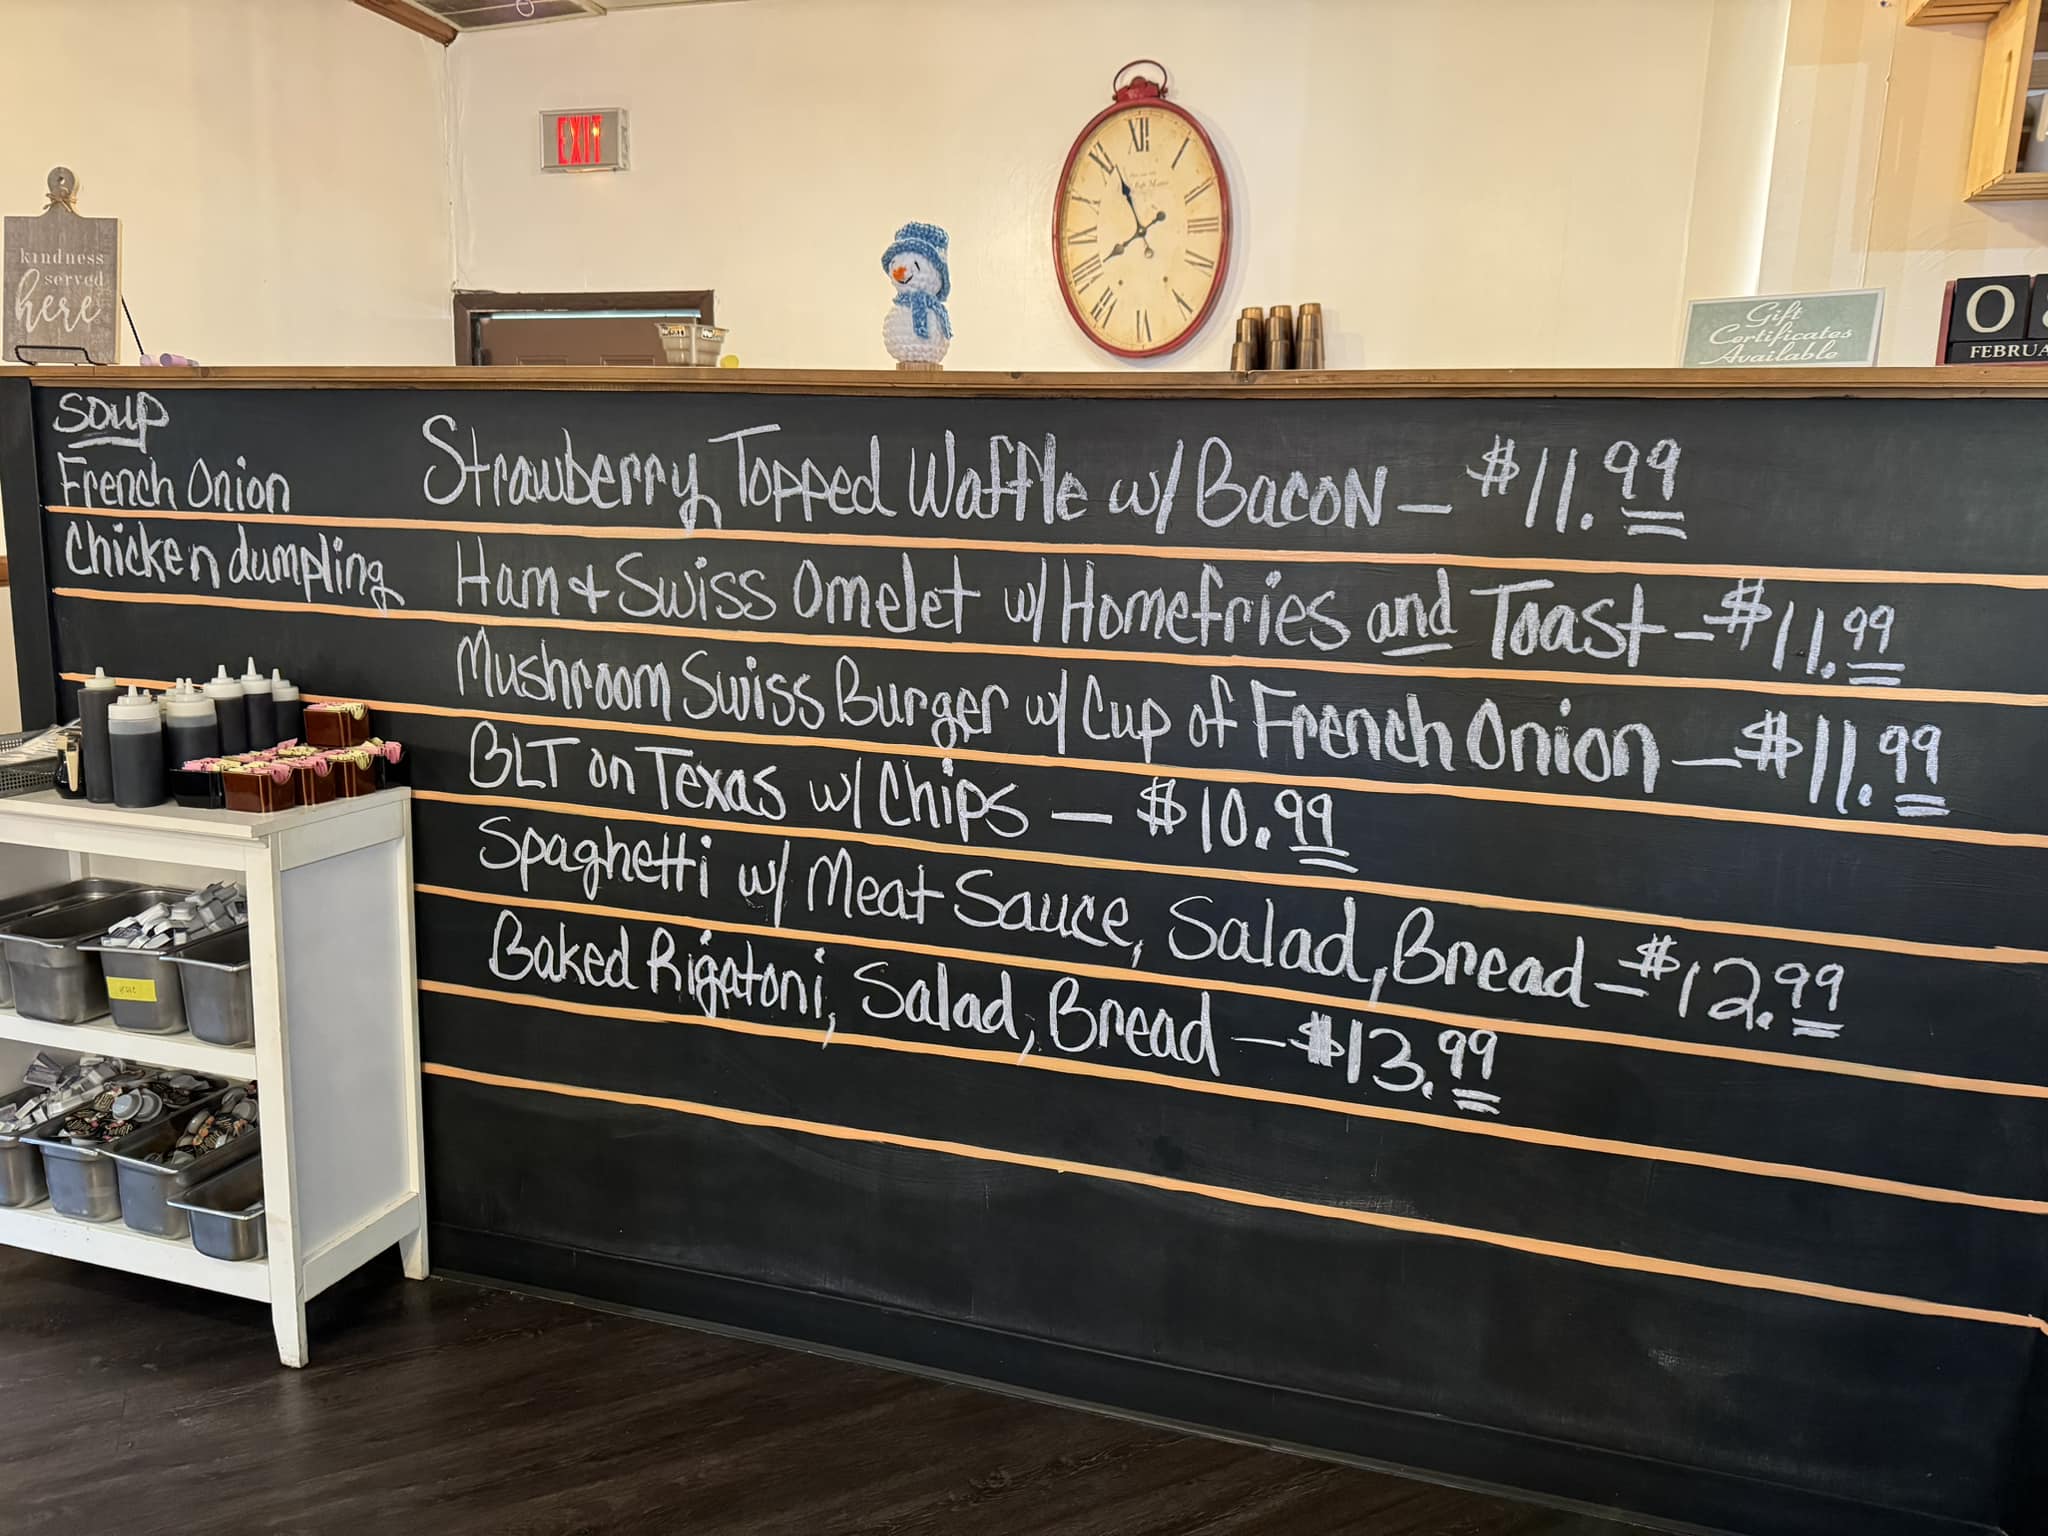 EXIT
kindness
served
here
XII
Gift
Certificates
Available
0
FEBRUA
soup
French Onion
Chicken dumpling
Strawberry Topped Waffle w/ Bacon – $11.99
Ham + Swiss Omelet w/ Homefries and Toast – $11.99
Mushroom Swiss Burger w/ Cup of French Onion – $11.99
BLT on Texas w/ Chips – $10.99
Spaghetti w/ Meat Sauce, Salad, Bread – $12.99
Baked Rigatoni, Salad, Bread – $13.99